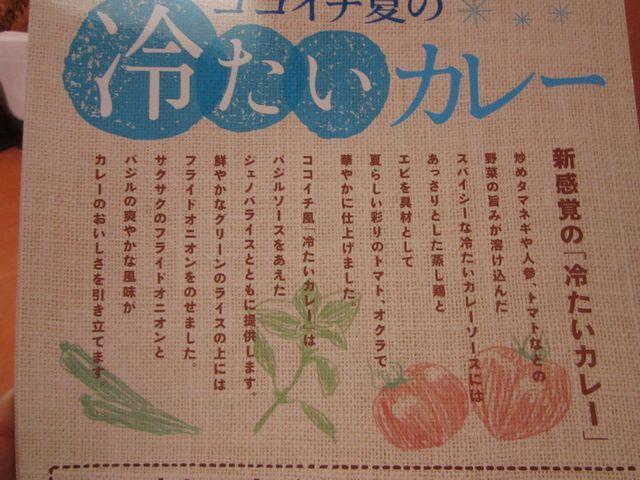 ココイチ夏の
冷たいカレー
新感覚の「冷たいカレー」
炒めタマネギや人参、トマトなどの
野菜の旨みが溶け込んだ
スパイシーな冷たいカレーソースには
あっさりとした蒸し鶏と
エビを具材として
夏らしい彩りのトマト、オクラで
華やかに仕上げました。
ココイチ風「冷たいカレー」は
バジルソースをあえた
ジェノバライスとともに提供します。
鮮やかなグリーンのライスの上には
フライドオニオンをのせました。
サクサクのフライドオニオンと
バジルの爽やかな風味が
カレーのおいしさを引き立てます。